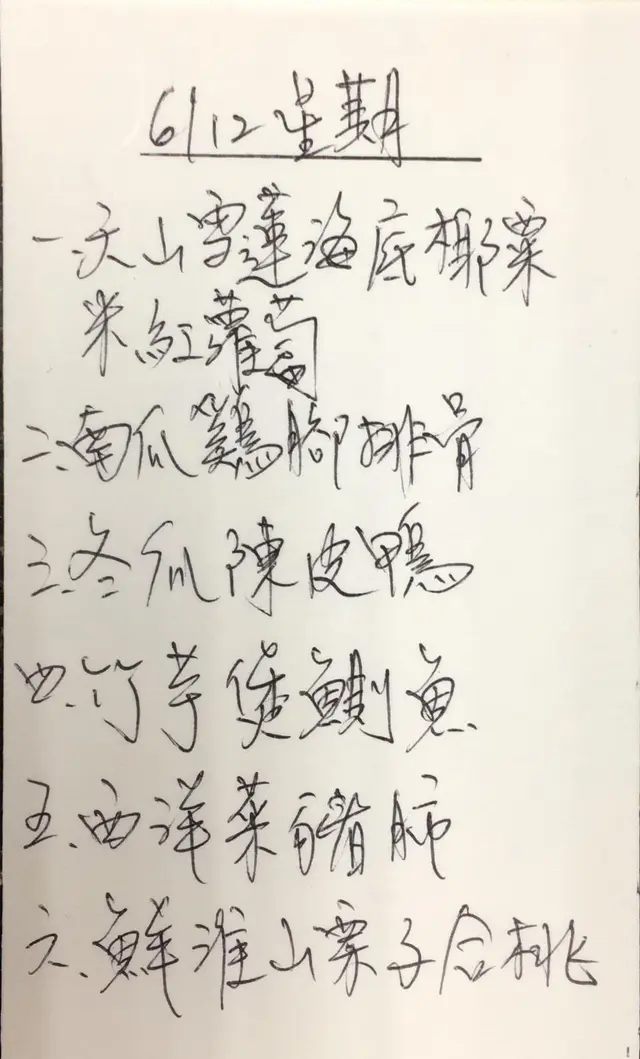 6/12 星期
一、天山雪蓮海底椰粟
米紅蘿蔔
二、南瓜鷄腳排骨
三、冬瓜陳皮鴨
四、竹芋煲鰂魚
五、西洋菜豬肺
六、鮮淮山栗子合桃